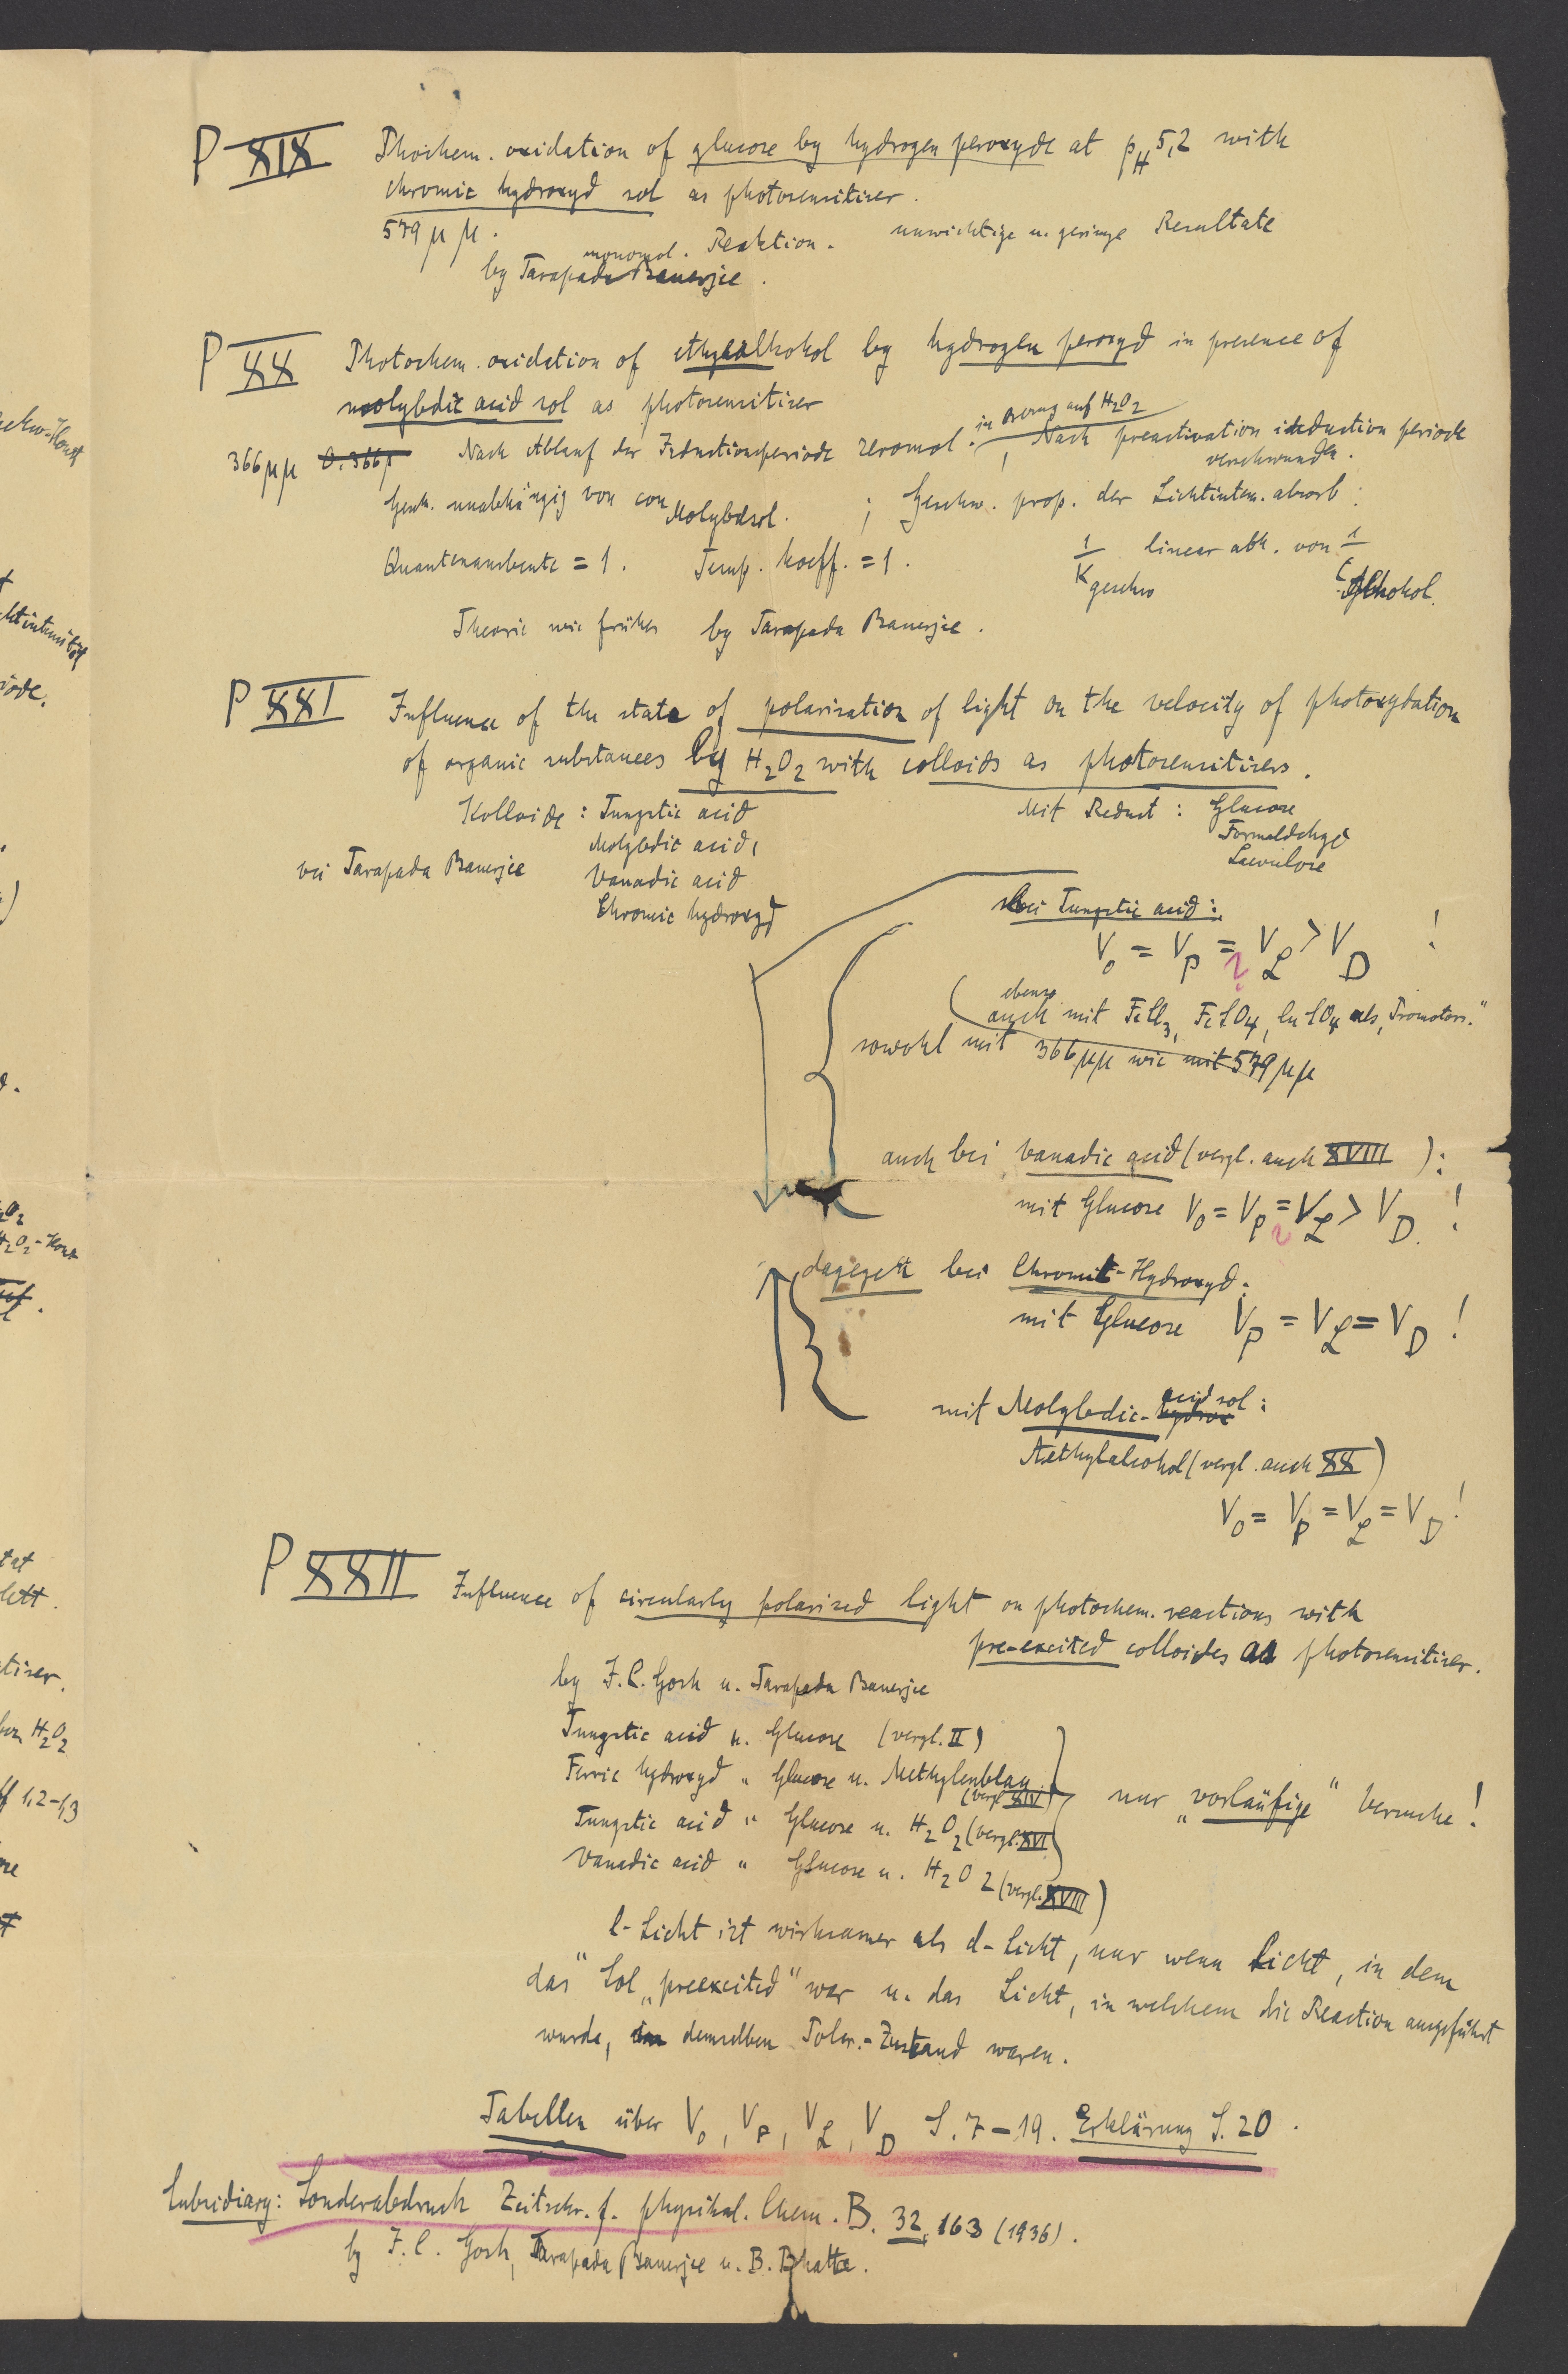 P XIX Phochem. oxidation of glucose by hydrogen peroxyde at pH 5,2 with
chromic hydroxyd sol as photosensitiser.
579 μμ. monomol. Reaktion. unwichtige u. geringe Resultate
by Tarapada Banerjee.
P XX Photochem. oxidation of ethylalkohol by hydrogen peroxyd in presence of
molybdic acid sol as photosensitiser
in Bezug auf H2O2
366 μμ Nach Ablauf der Inductionsperiode zeromol. , Nach preactivation induction periode
verschwunden.
Gesch. unabhängig von con Molybdsol. ; Geschw. prop. der Lichtinten. absorb.
Quantenausbeute = 1. Temp. koeff. = 1. 1/K geschw linear abh. von 1/C Alkohol.
Theorie wie früher by Tarapada Banerjee.
P XXI Influence of the state of polarisation of light on the velocity of photoxydation
of organic substances by H2O2 with colloids as photosensitisers.
Kolloide: Tungstic acid Mit Reduct: Glucose
Molybdic acid, Formaldehyd
bei Tarapada Banerjee Vanadic acid Laevulose
Chromic hydroxyd
bei Tungstic acid:
V0 = VP = VL > VD !
(ebenso auch mit FeCl3, FeSO4, CuSO4 als „Promotors."
sowohl mit 366 μμ wie mit 579 μμ
auch bei Vanadic acid (vergl. auch XVIII):
mit Glucose V0 = VP = VL > VD !
dagegen bei Chromic-Hydroxyd:
mit Glucose VP = VL = VD !
mit Molybdic-acid sol:
Aethylalcohol (vergl. auch XX)
V0 = VP = VL = VD !
P XXII Influence of circularly polarised light on photochem. reactions with
pre-excited colloides as photosensitiser.
by J.C. Gosh u. Tarapada Banerjee
Tungstic acid u. Glucose (vergl. II)
Ferric hydroxyd " Glucose u. Methylenblau (vergl. XIV)
nur „vorläufige" Versuche!
Tungstic acid " Glucose u. H2O2 (vergl. XVI)
Vanadic acid " Glucose u. H2O2 (vergl. XVIII)
l-Licht ist wirksamer als d-Licht, nur wenn Licht, in dem
das Sol „preexcited" war u. das Licht, in welchem die Reaction ausgeführt
wurde, demselben Polar.-Zustand waren.
Tabellen über V0, VP, VL, VD S. 7-19. Erklärung S. 20.
Subsidiary: Sonderabdruck Zeitschr. f. physikal. Chem. B. 32, 163 (1936).
by J.C. Gosh, Tarapada Banerjee u. B. Bhatta.